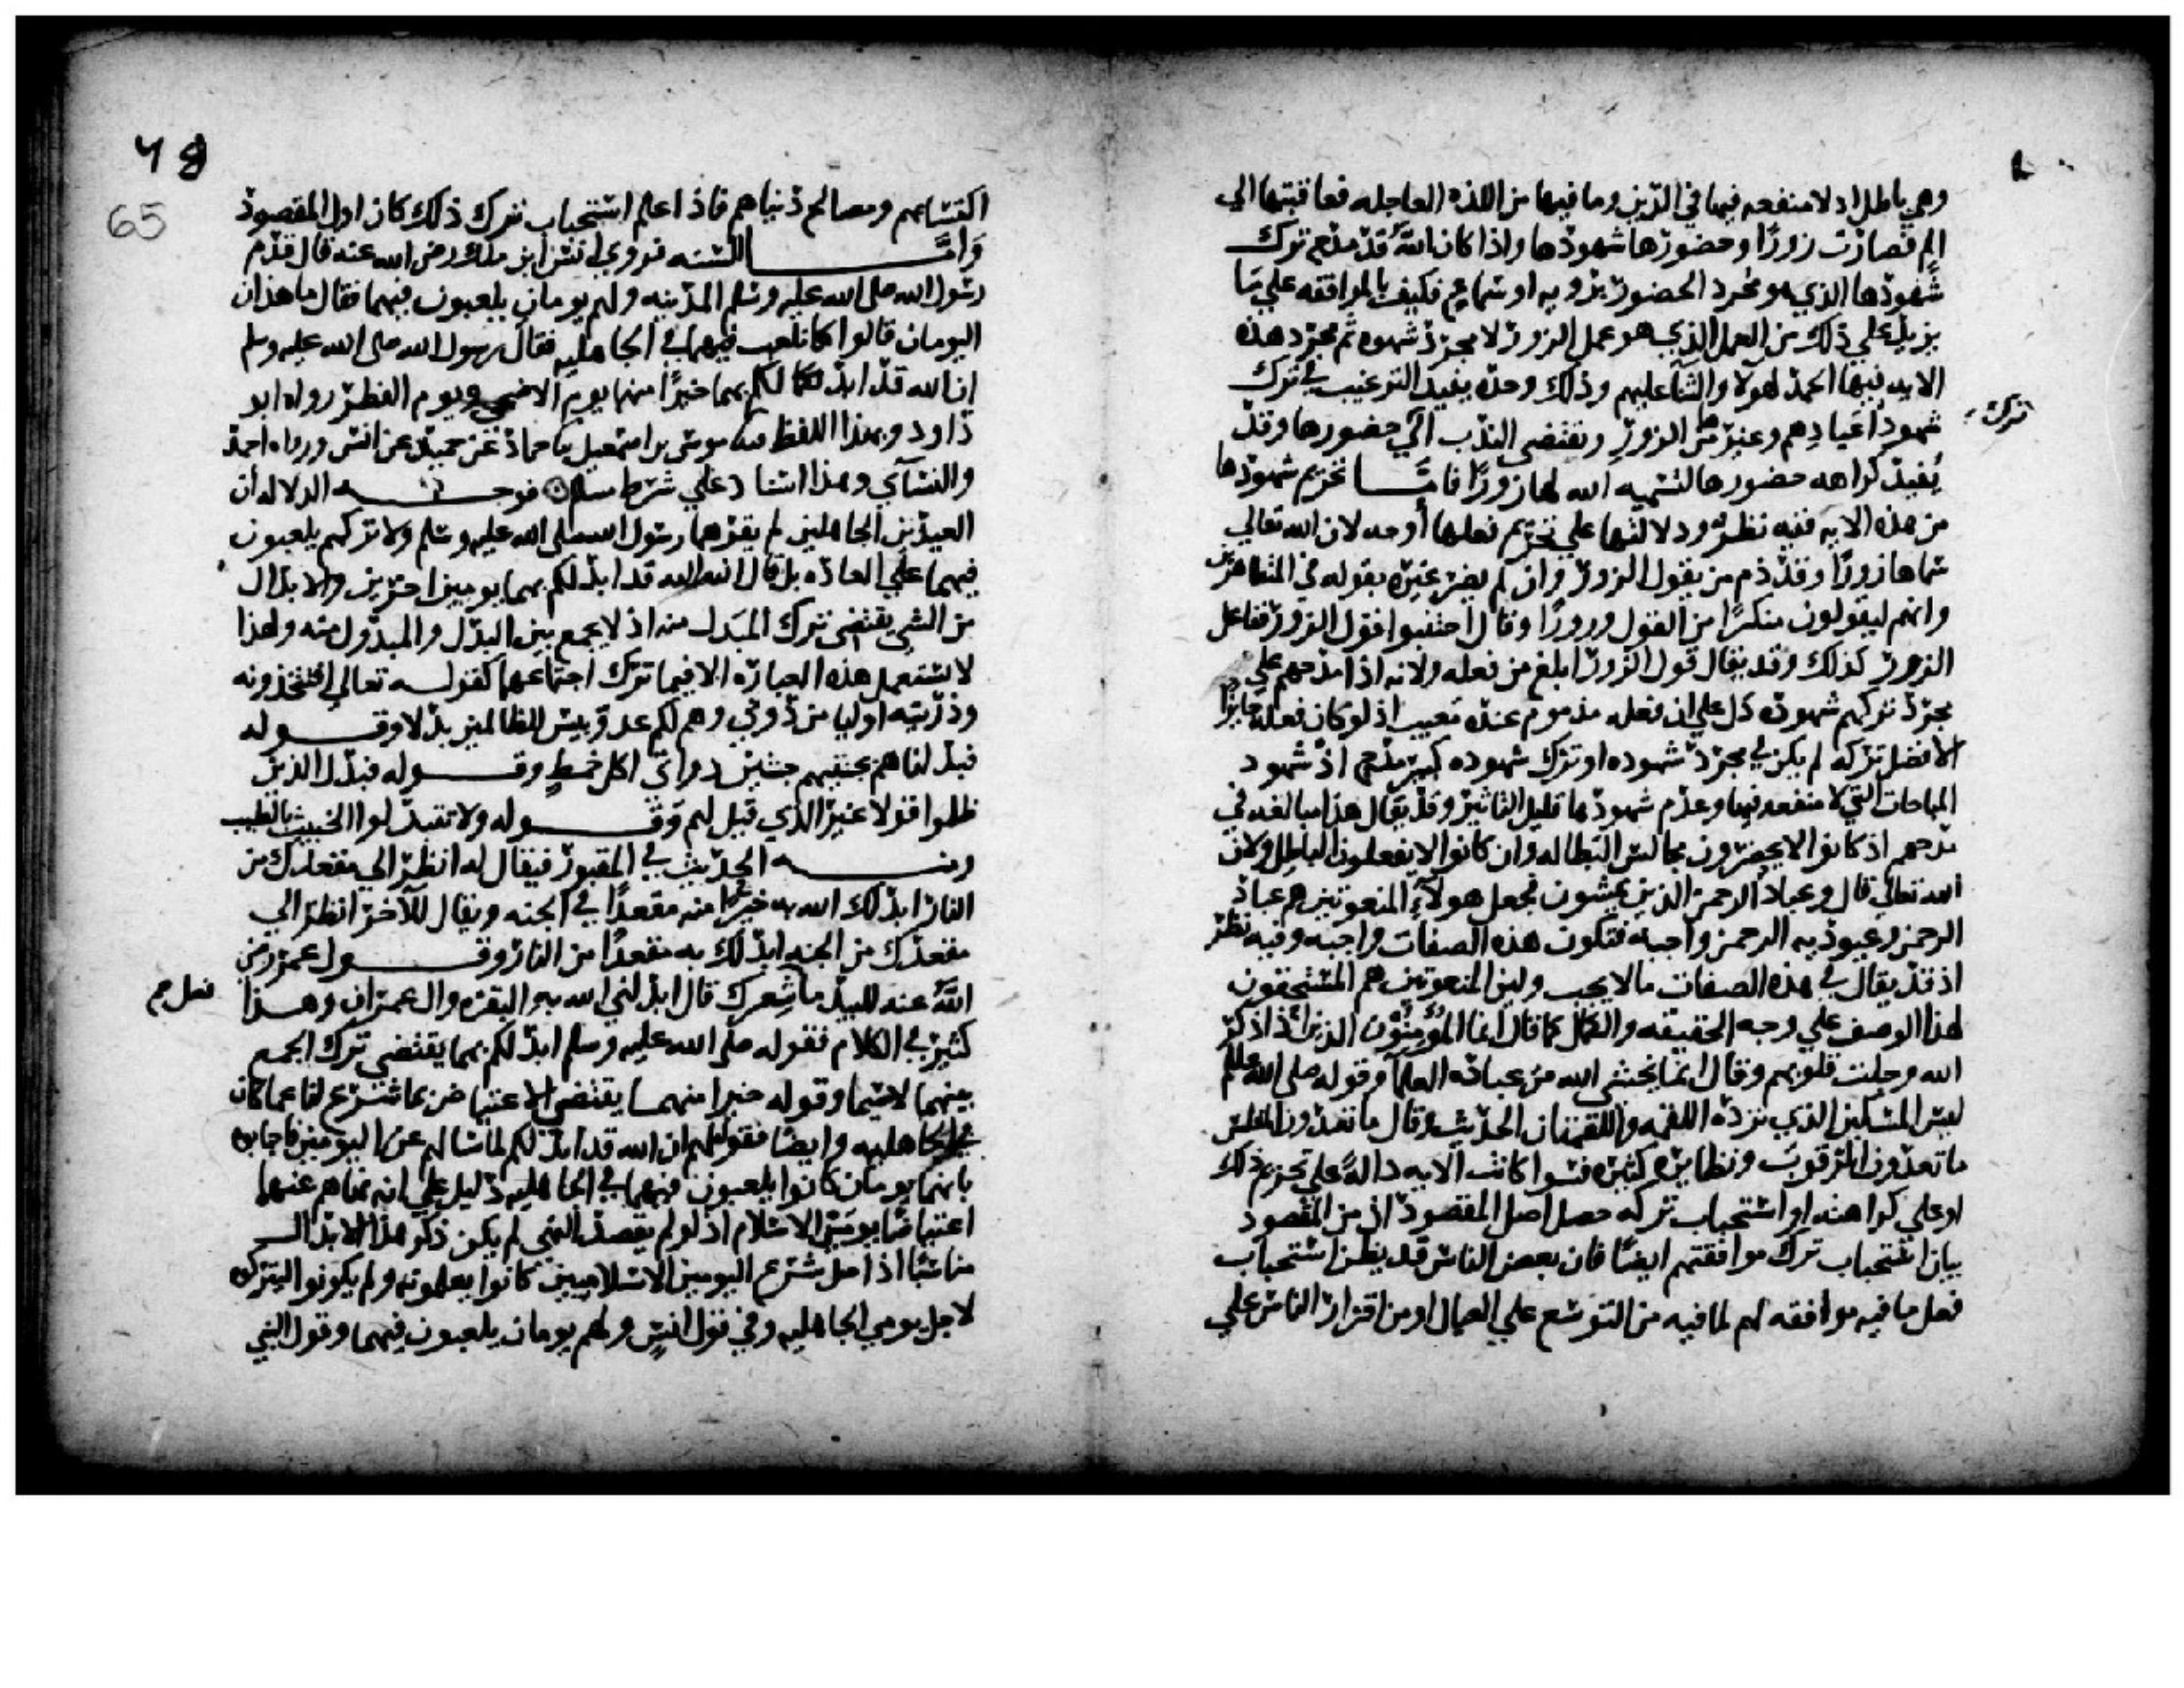 وهي باطل اذ لا منفعه فيها في الدين وما فيها من اللذه العاجله فعاقبتها الي
الم فصارت زورًا وحضورها شهودها واذا كان اللّه قد مدح ترك
شهودها الذي هو مجرد الحضور برويه او سماع فكيف بالموافقه علي ما
يزيد علي ذلك من العمل الذي هو عمل الزور لا مجرد شهوده ثم مجرد هذه
الايه فيها الحمد لهولا والثنا عليهم وذلك وحده يفيد الترغيب في ترك
شهود اعيادهم وغيرها من الزور ويقتضي الندب الي حضورها وقد
ترك
يُفيد كراهه حضورها لتسميه الله لها زورًا فامّا تحريم شهودها
من هذه الايه ففيه نظر ودلالتها علي تحريم فعلها أوجه لان الله تعالي
سماها زورًا وقد ذم من يقول الزور وان لم يضر غيره بقوله في المتظاهرين
وانهم ليقولون منكرًا من القول وزورًا وقال اجتنبوا قول الزور ففاعل
الزور كذلك وقد يقال قول الزور ابلغ من فعله ولانه اذا مدحهم علي
مجرد تركهم شهوده دل علي ان فعله مذموم عنده معيب اذ لو كان فعله جايزا
والافضل تركه لم يكن في مجرد شهوده او ترك شهوده كبير مدح اذ شهود
المباحات التي لا منفعه فيها وعدم شهودها قليل التاثير وقد يقال هذا مبالغه في
مدحهم اذ كانوا لا يحضرون مجالس البطاله وان كانوا لا يفعلون الباطل ولان
الله تعالي قال وعباد الرحمن الذين يمشون فجعل هولاء المنعوتين هم عباد
الرحمن وعبوديه الرحمن واجبه فتكون هذه الصفات واجبه وفيه نظر
اذ قد يقال في هذه الصفات ما لا يجب ولان المنعوتين هم المستحقون
لهذا الوصف علي وجه الحقيقه والكمال كما قال انما المؤمنون الذين اذا ذكر
الله وجلت قلوبهم وقال انما يخشي الله من عباده العلما وقوله صلي الله عليه وسلم
ليس المسكين الذي ترده اللقمه واللقمتان الحديث وقال ما تعدون المفلس
ما تعدون الرقوب ونظايره كثيره فسوا كانت الايه دالةً علي تحريم ذلك
او علي كراهته او استحباب تركه حصل اصل المقصود اذ من المقصود
بيان استحباب ترك موافقتهم ايضًا فان بعض الناس قد يظن استحباب
فعل ما فيه موافقه لهم لما فيه من التوسع علي العيال او من اقرار الناس علي
٦٥
65
اكتسابهم ومصالح دنياهم فاذا علم استحباب ترك ذلك كان اول المقصود
وَامَّا السنه فروي انس ابن مالك رضي الله عنه قال قدم
رسول الله صلي الله عليه وسلم المدينه ولهم يومان يلعبون فيهما فقال ما هذان
اليومان قالوا كنا نلعب فيهما في الجاهليه فقال رسول الله صلي الله عليه وسلم
ان الله قد ابدلكم بهما خيرًا منهما يوم الاضحي ويوم الفطر رواه ابو
داود وبهذا اللفظ موسي بن اسمعيل نا حماد عن حميد عن انس ورواه احمد
والنسآي وهذا اسناد علي شرط مسلم فوجه الدلاله ان
العيدين الجاهليين لم يقرهما رسول الله صلي الله عليه وسلم ولا تركهم يلعبون
فيهما علي العاده بل قال ان الله قد ابدلكم بهما يومين اخرين والابدال
من الشي يقتضي ترك المبدل منه اذ لا يجمع بين البدل والمبدول منه ولهذا
لا تستعمل هذه العباره الا فيما ترك اجتماعهما كقوله تعالي افتتخذونه
وذريته اوليا من دوني وهم لكم عدو بيس للظالمين بدلا وقوله
فبدلناهم بجنتيهم جنتين ذواتي اكل خمط وقوله فبدل الذين
ظلموا قولا غير الذي قيل لهم وَقوله ولا تتبدلوا الخبيث بالطيب
ومنه الحديث في المقبور فيقال له انظر الي مقعدك من
النار ابدلك الله به خيرًا منه مقعدًا في الجنه ويقال للآخر انظر الي
مقعدك من الجنه ابدلك به مقعدًا من النار وقول عمر رضي
اللّه عنه للبيد ما شعرك قال ابدلني الله به البقره وال عمران وهذا
كثير في الكلام فقوله صلي الله عليه وسلم ابدلكم بهما يقتضي ترك الجمع
بينهما لا سيما وقوله خيرا منهما يقتضي الاعتياض بما شرع لنا عما كان
في الجاهليه وايضًا فقوله لهم ان الله قد ابدلكم لما سالهم عن اليومين فاجابوه
بانهما يومان كانوا يلعبون فيهما في الجاهليه دليل علي انه نهاهم عنهما
اعتياضًا بيومي الاسلام اذ لو لم يقصد النهي لم يكن ذكر هذا الابدال
مناسبًا اذ اصل شرع اليومين الاسلاميين كانوا يعلمونه ولم يكونوا ليتركوه
لاجل يومي الجاهليه وفي قول انس ولهم يومان يلعبون فيهما وقول النبي